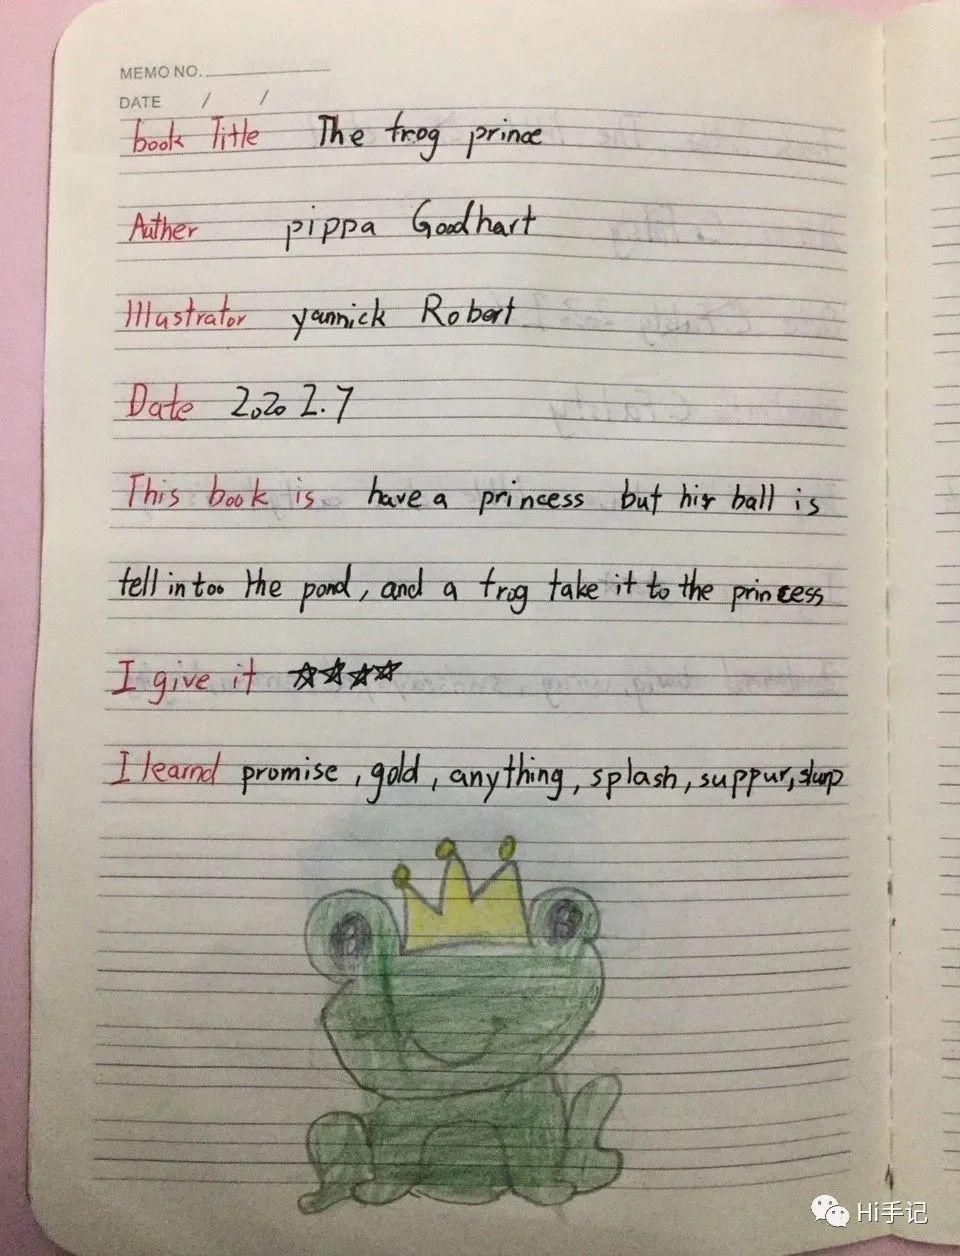 MEMO NO.
DATE / /
book Title The frog prince
Auther pippa Goodhart
Illustrator yannick Robert
Date 2020 2.7
This book is have a princess but hir ball is
fell in too the pond, and a frog take it to the princess
I give it ☆☆☆☆
I learnd promise, gold, anything, splash, suppur, slurp
Hi手记